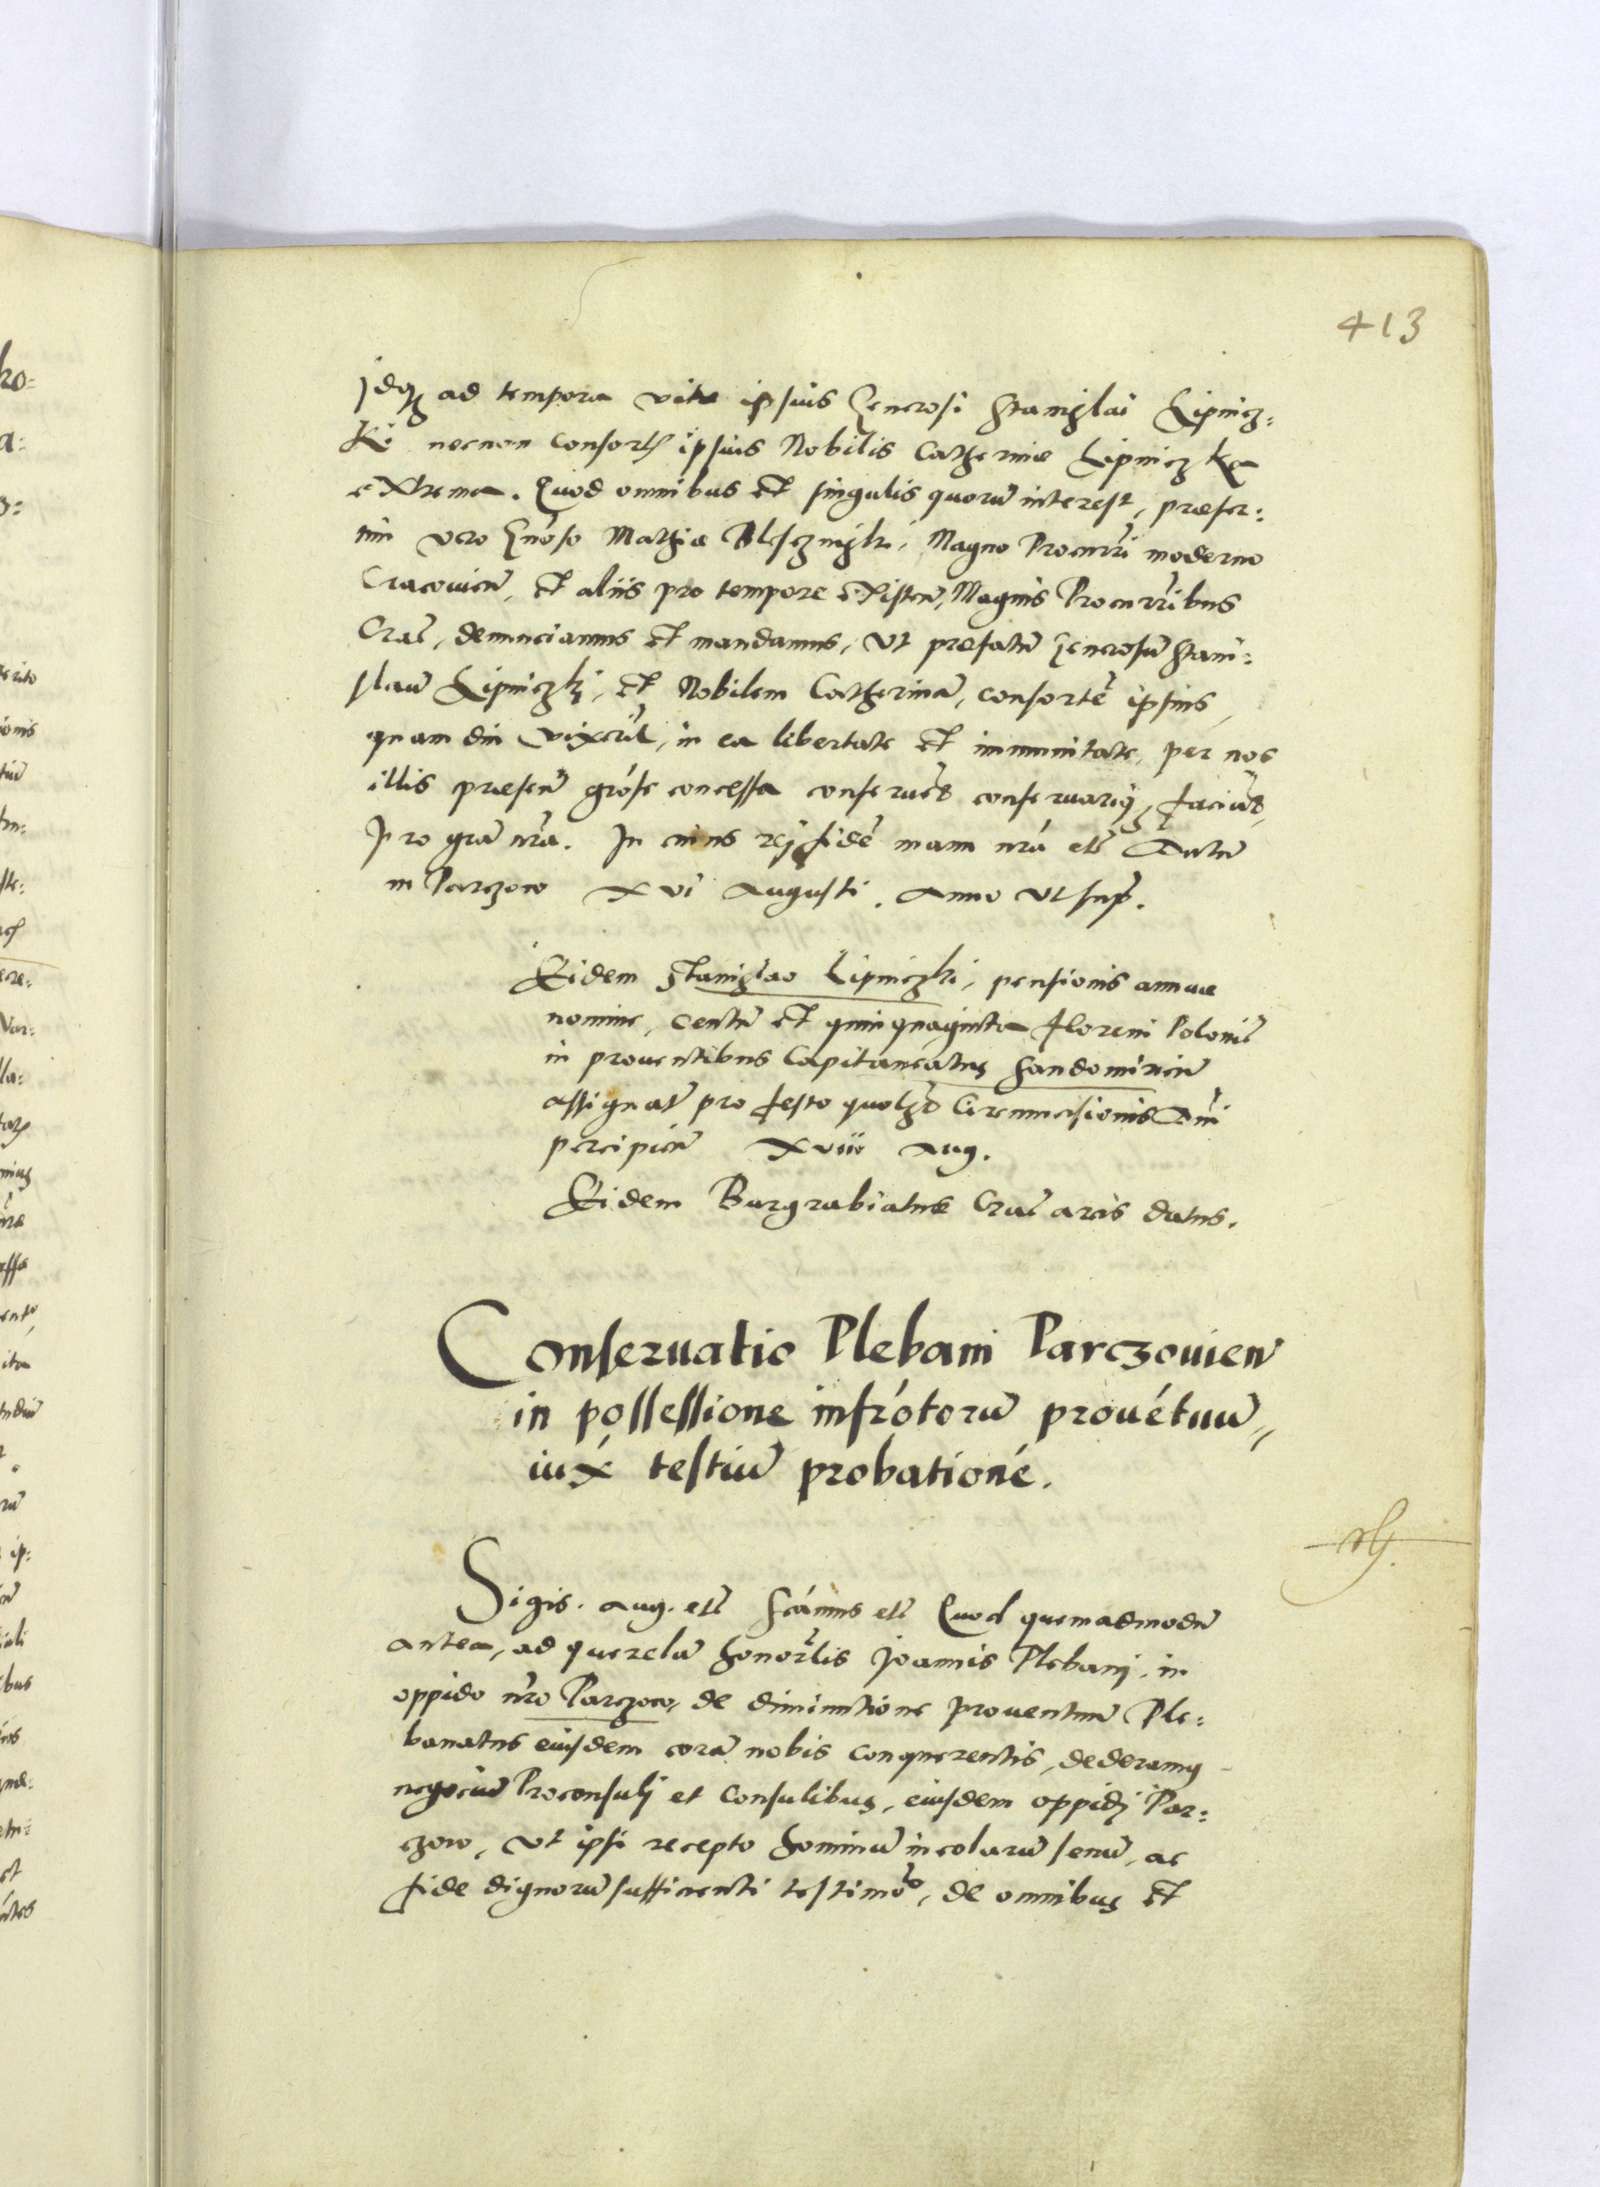 413
Idq; ad tempora vitæ ipsius Generosi Stanislai Lipnicz:
ki necnon Consortis ipsius Nobilis Catherinæ Lipniczka
extrema. Quod omnibus et singulis quorū interest, præser:
tim vero Gn̄oso Mathiæ Magno Procur̄ri moderno
Cracovień, et aliis pro tempore existeñ, Magnis Procurr̄ibus
Crac̄, denunciamus et mandamus, Vt præfatū Generosū Stani:
slaū Lipniczki, et Nobilem Catherinā, consortē ipsius,
quamdiu vixerīt, in ea libertate et immunitate, per nos
illis præseñ gr̄ose concessa conserveñt conservariq; faciāt,
pro gr̄a nr̄a. In cuius rej fidē manu nr̄a etc̄ Datū
in Parczow XVI Augusti. Anno Vt supr̄.
Eidem Stanislao Lipniczki, pensionis annuæ
nomine, centū et quinquaginta floreni Polonic̄
in proventibus Capitaneatus Sandomirień
assignat̄ pro festo quolz̄t Circumcisionis Dn̄i
percipień XVIII Aug.
Eidem Burgrabiatus Crac̄ arcis datus.
Conservatio Plebani Parczovień
in possessione infr̄otorū provētuū,,
iux̄ testiū probationē.
Sigis. Aug. etc̄ Sc̄amus etc̄ Quod quemadmodū
antea, ad querelā honor̄lis Joannis Plebanj, in
oppido nr̄o Parczow, de diminutione proventuū Ple:
banatus eiusdem corā nobis conquerentis, dederamus
negociū Proconsulj et Consulibus, eiusdem oppidj Par:
czow, Vt ipsi recepto hominū incolarū senū, ac
fide dignorū sufficienti testimōo, de omnibus et